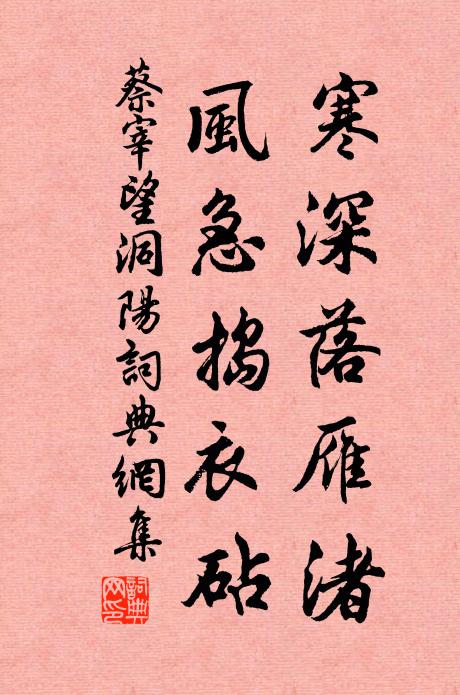 寒深落雁渚
風急搗衣砧
蔡宰望洞陽詞典網集
詞典
网印